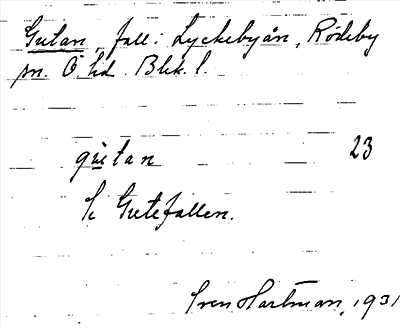 Gutan, fall i Lyckebyån, Rödeby
sn. Ö hd. Blek. l.
gutan 23
Gutefallen.
Sven Hartman, 1931